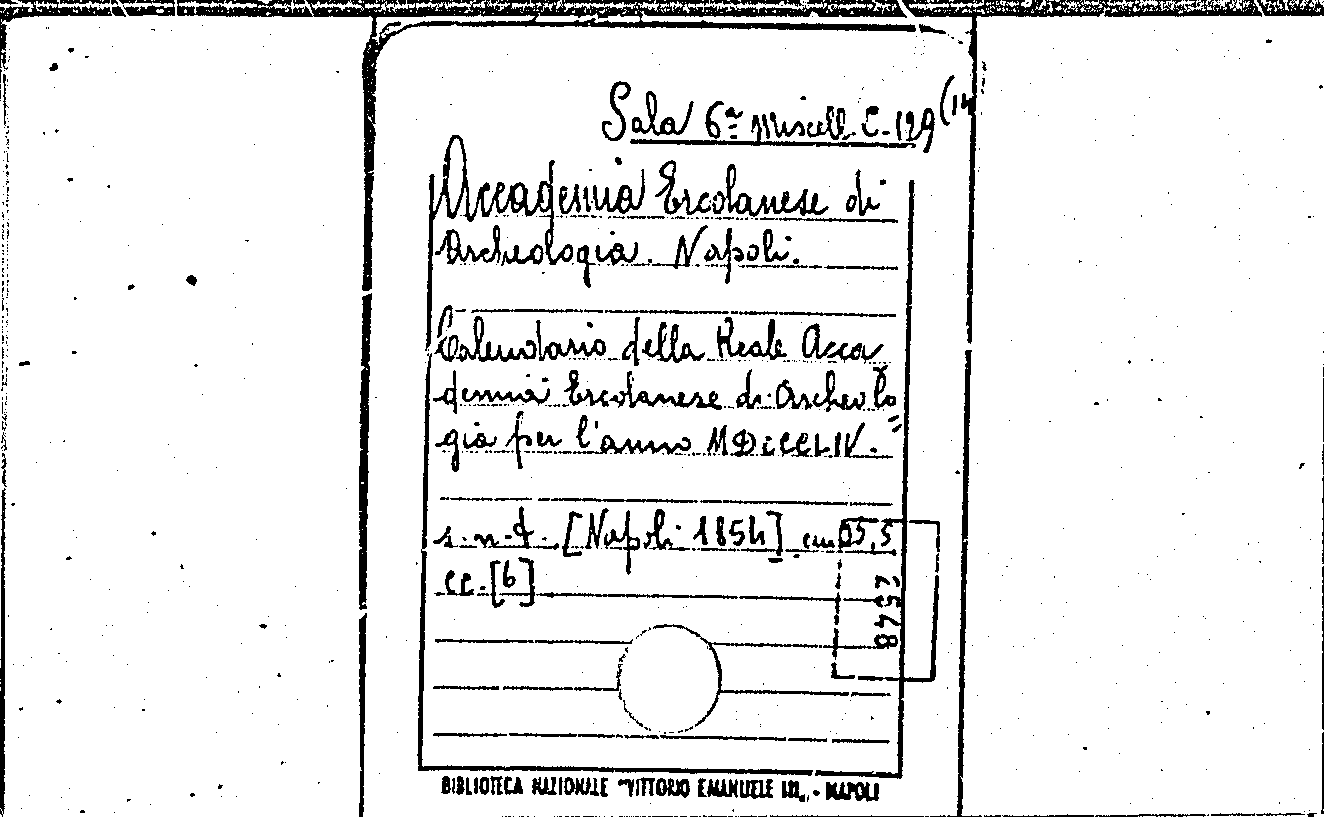 Sala 6ª Miscell. C-129 (14
Accademia Ercolanese di
Archeologia. Napoli.
Calendario della Reale Acca
demia Ercolanese di Archeolo
gia per l'anno MDCCCLIV.
s.n.t. [Napoli 1854] cm 15,5
cc. [6]
2548
BIBLIOTECA NAZIONALE "VITTORIO EMANUELE III„ - NAPOLI